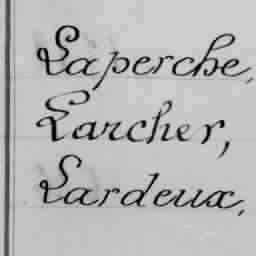 Laperche,
Larcher,
Lardeux,